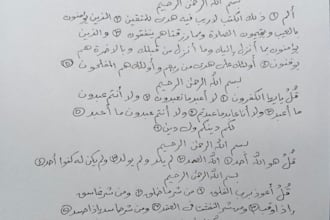 بسم الله الرحمن الرحيم
ألم ① ذلك الكتب لا ريب فيه هدى للمتقين ② الذين يؤمنون
بالغيب ويقيمون الصلاة ومما رزقناهم ينفقون ③ والذين
يؤمنون بما أنزل إليك وما أنزل من قبلك وبالآخرة هم
يوقنون ④ أولئك على هدى من ربهم وأولئك هم المفلحون ⑤
بسم الله الرحمن الرحيم
قل يا أيها الكفرون ① لا أعبد ما تعبدون ② ولا أنتم عبدون
ما أعبد ③ ولا أنا عابد ما عبدتم ④ ولا أنتم عبدون ما أعبد ⑤
لكم دينكم ولي دين ⑥
بسم الله الرحمن الرحيم
قل هو الله أحد ① الله الصمد ② لم يلد ولم يولد ③ ولم يكن له كفوا أحد ④
بسم الله الرحمن الرحيم
قل أعوذ برب الفلق ① من شر ما خلق ② ومن شر غاسق
إذا وقب ③ ومن شر النفثت في العقد ④ ومن شر حاسد إذا حسد ⑤